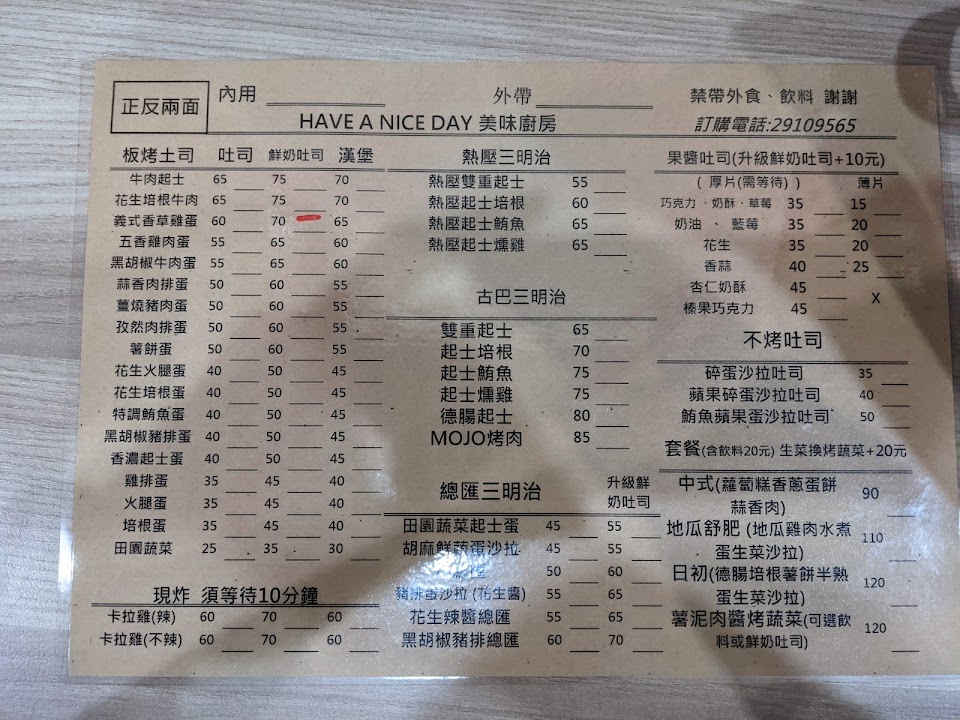 正反兩面 內用 外帶 禁帶外食、飲料 謝謝
HAVE A NICE DAY 美味廚房 訂購電話:29109565
板烤土司 吐司 鮮奶吐司 漢堡
牛肉起士 65 75 70
花生培根牛肉 65 75 70
義式香草雞蛋 60 70 65
五香雞肉蛋 55 65 60
黑胡椒牛肉蛋 55 65 60
蒜香肉排蛋 50 60 55
薑燒豬肉蛋 50 60 55
孜然肉排蛋 50 60 55
薯餅蛋 50 60 55
花生火腿蛋 40 50 45
花生培根蛋 40 50 45
特調鮪魚蛋 40 50 45
黑胡椒豬排蛋 40 50 45
香濃起士蛋 40 50 45
雞排蛋 35 45 40
火腿蛋 35 45 40
培根蛋 35 45 40
田園蔬菜 25 35 30
現炸 須等待10分鐘
卡拉雞(辣) 60 70 60
卡拉雞(不辣) 60 70 60
熱壓三明治
熱壓雙重起士 55
熱壓起士培根 60
熱壓起士鮪魚 65
熱壓起士燻雞 65
古巴三明治
雙重起士 65
起士培根 70
起士鮪魚 75
起士燻雞 75
德腸起士 80
MOJO烤肉 85
總匯三明治 升級鮮
奶吐司
田園蔬菜起士蛋 45 55
胡麻鮮蔬蛋沙拉 45 55
50 60
豬排蛋沙拉 (花生醬) 55 65
花生辣醬總匯 55 65
黑胡椒豬排總匯 60 70
果醬吐司(升級鮮奶吐司+10元)
( 厚片(需等待) ) 薄片
巧克力、奶酥、草莓 35 15
奶油 、 藍莓 35 20
花生 35 20
香蒜 40 25
杏仁奶酥 45
X
榛果巧克力 45
不烤吐司
碎蛋沙拉吐司 35
蘋果碎蛋沙拉吐司 40
鮪魚蘋果蛋沙拉吐司 50
套餐(含飲料20元) 生菜換烤蔬菜+20元
中式(蘿蔔糕香蔥蛋餅 90
蒜香肉)
地瓜舒肥 (地瓜雞肉水煮 110
蛋生菜沙拉)
日初(德腸培根薯餅半熟 120
蛋生菜沙拉)
薯泥肉醬烤蔬菜(可選飲 120
料或鮮奶吐司)